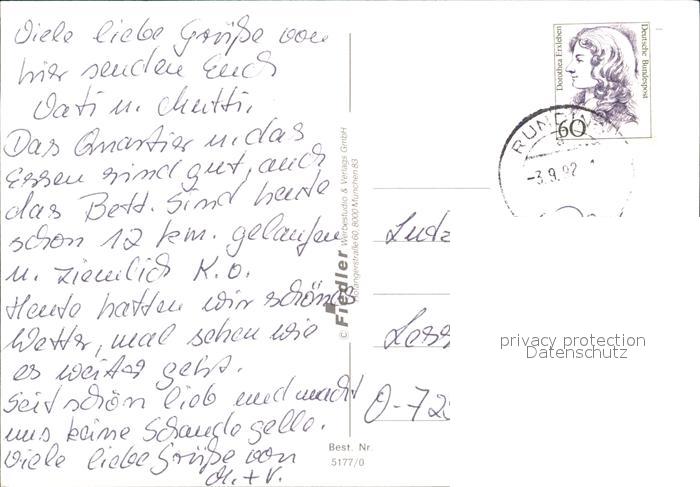 Viele liebe Grüße von
hier senden Euch
Vati u. Mutti.
Das Quartier u. das
Essen sind gut, auch
das Bett. Sind heute
schon 12 km. gelaufen
u. ziemlich K.O.
Heute hatten wir schönes
Wetter, mal sehen wie
es weiter geht.
Seit schön lieb und macht
uns keine Schande gelle.
Viele liebe Grüße von
M. + V.
© Fiedler Werbestudio & Verlags GmbH
60, 8000 München 83
Best. Nr.
5177/0
Dorothea Erxleben
Deutsche Bundespost
60
-3.9.92
Lutz
Less
O-72
privacy protection
Datenschutz